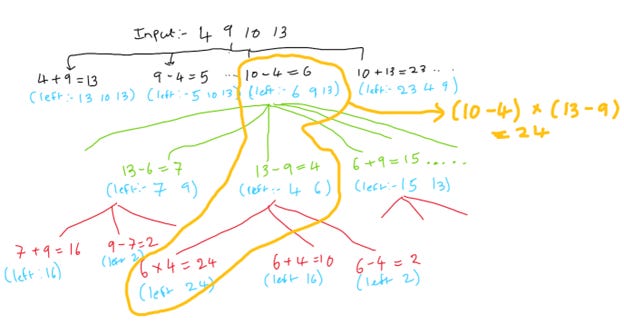 Input:- 4 9 10 13
4 + 9 = 13
(left:- 13 10 13)
9 - 4 = 5 ...
(left:- 5 10 13)
10 - 4 = 6
(left:- 6 9 13)
10 + 13 = 23 ....
(left:- 23 4 9)
(10 - 4) × (13 - 9)
= 24
13 - 6 = 7
(left:- 7 9)
13 - 9 = 4
(left:- 4 6)
6 + 9 = 15 .....
(left:- 15 13)
7 + 9 = 16
(left: 16)
9 - 7 = 2
(left 2)
6 × 4 = 24
(left 24)
6 + 4 = 10
(left 16)
6 - 4 = 2
(left 2)